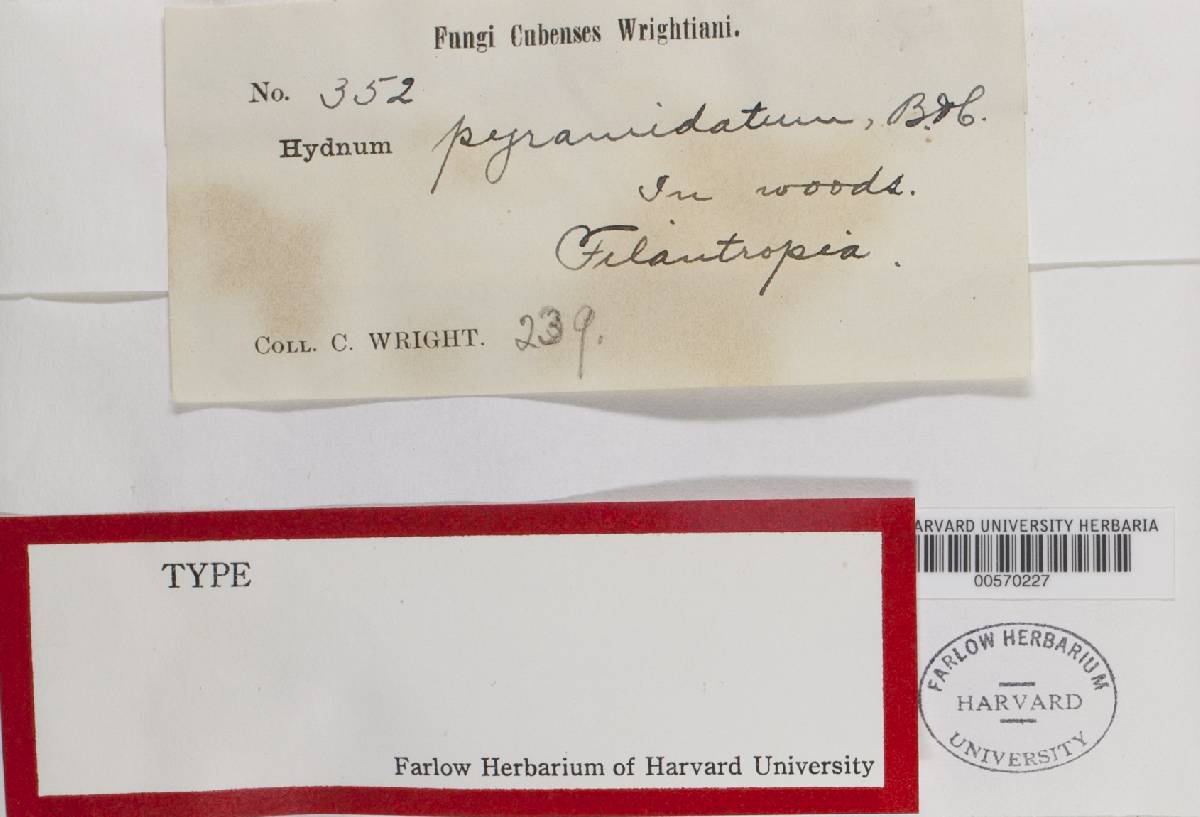 Fungi Cubenses Wrightiani.
No. 352
Hydnum pyramidatum, B.&C.
In woods.
Filantropia.
COLL. C. WRIGHT. 239.
TYPE
Farlow Herbarium of Harvard University
ARVARD UNIVERSITY HERBARIA
00570227
FARLOW HERBARIUM
HARVARD
UNIVERSITY